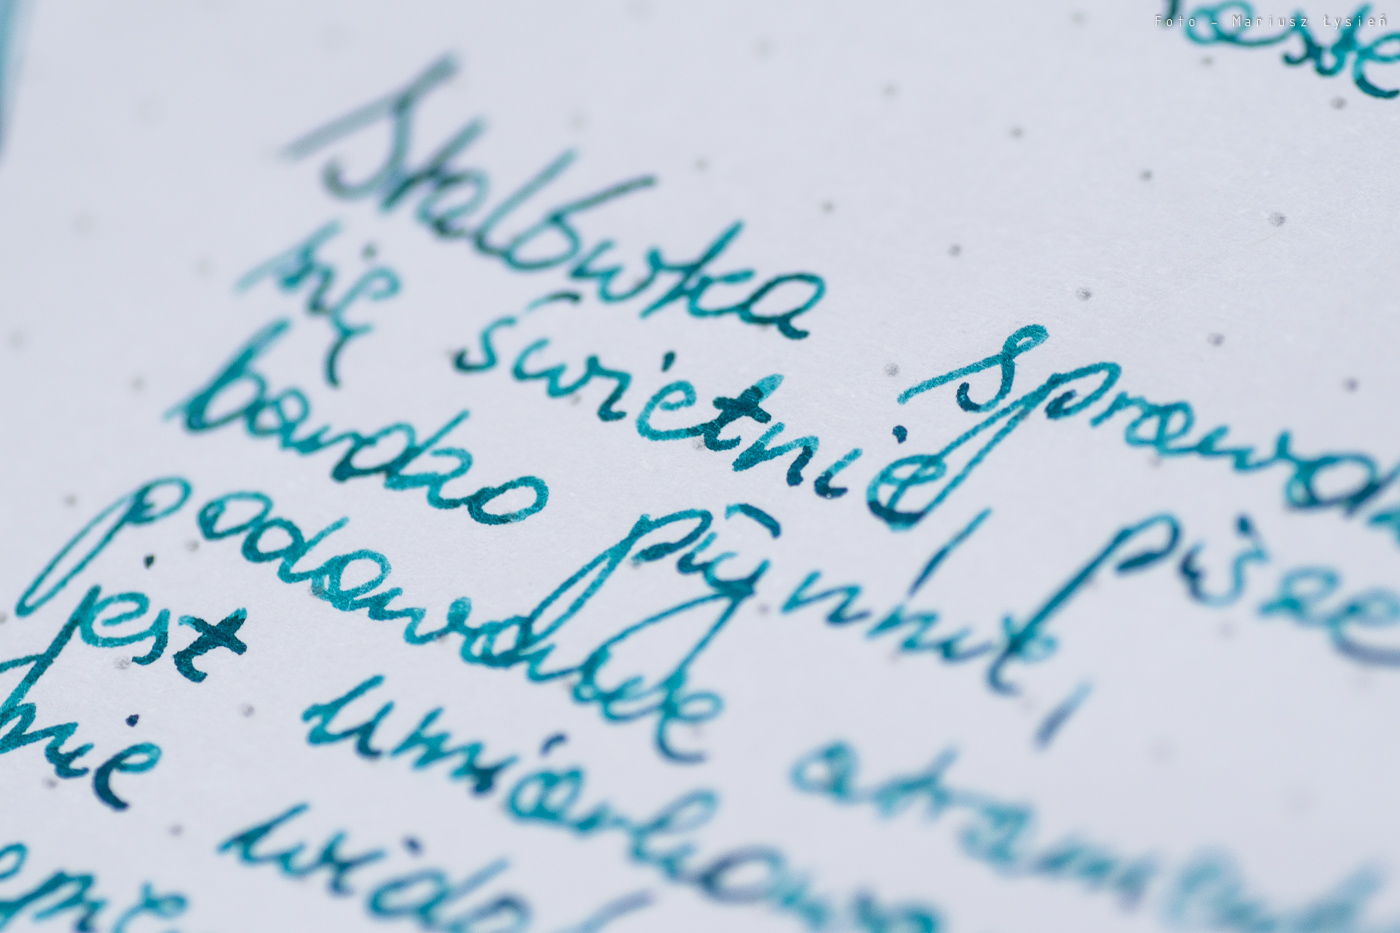 Foto - Mariusz Łysień
Stalówka sprawd
się świetnie, pisze
bardzo płynnie,
podawanie atramentu
jest umiarkowa
nie wido